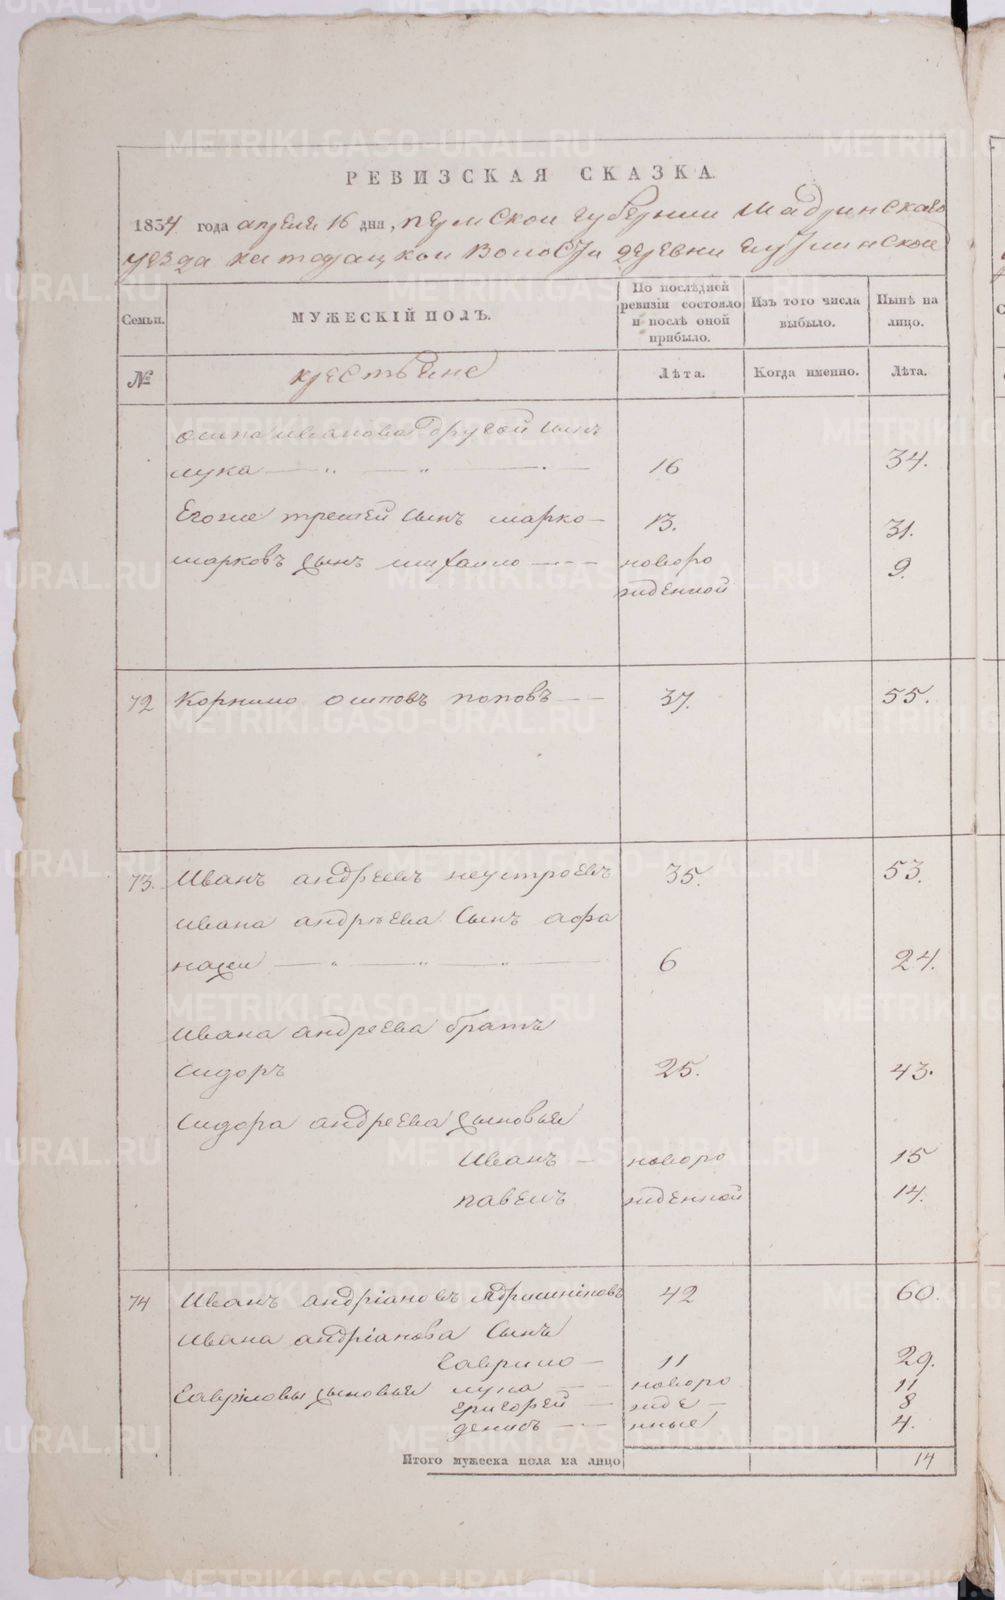 РЕВИЗСКАЯ СКАЗКА.
1834 года апреля 16 дня, пермской губернии Шадринскаго
уезда волости деревни
Семьи.
МУЖЕСКІЙ ПОЛЪ.
По послѣдней ревизіи состояло и послѣ оной прибыло.
Изъ того числа выбыло.
Нынѣ на лицо.
№
крестьяне
Лѣта.
Когда именно.
Лѣта.
осипа иванова другой сынъ
лука — „ — „ — 16 34.
Егоже третей сынъ марко — 13. 31.
марковъ сынъ михаило — новоро 9.
жденной
72 Корнило осиповъ поповъ — 37. 55.
73. Иванъ андреевъ неустроевъ 35. 53.
ивана андреева сынъ афа
насей — „ — „ — „ — 6 24.
ивана андреева братъ
сидоръ 25. 43.
сидора андреева сыновья
Иванъ — новоро 15
павелъ жденной 14.
74 Иванъ андріановъ 42 60.
ивана андріанова сынъ
гаврило — 11 29.
гавриловы сыновья лука — новоро 11
григорей — жде — 8
денисъ — нные 4.
Итого мужеска пола на лицо 14
METRIKI.GASO-URAL.RU